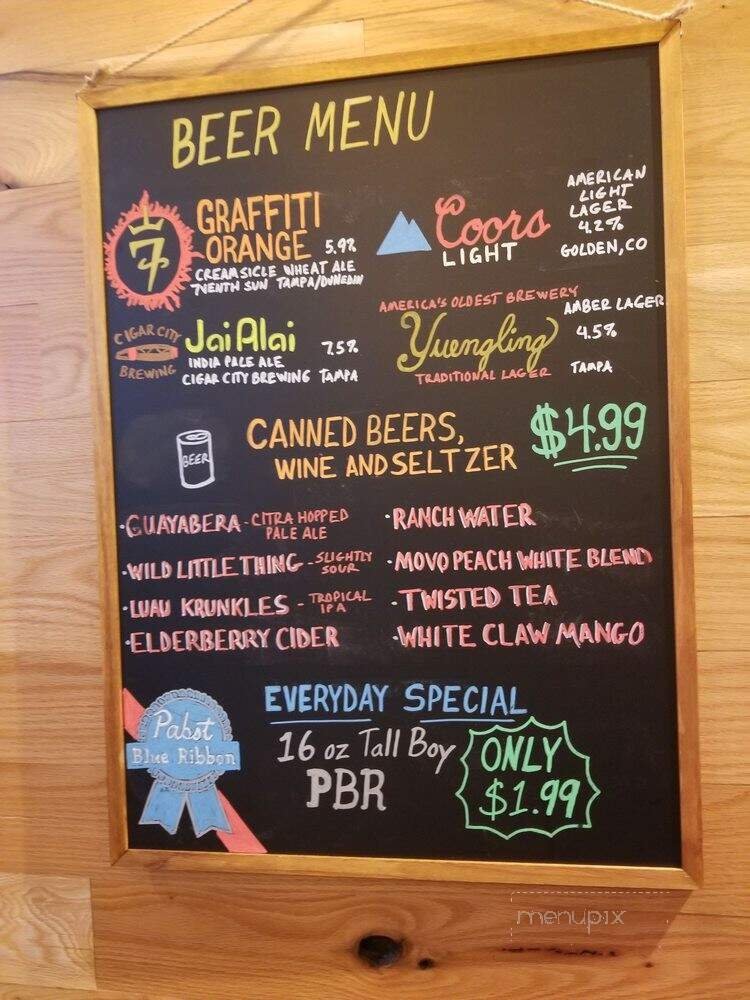 BEER MENU
7
GRAFFITI
ORANGE 5.9%
CREAMSICLE WHEAT ALE
7VENTH SUN TAMPA/DUNEDIN
Coors
LIGHT
AMERICAN
LIGHT
LAGER
4.2%
GOLDEN, CO
CIGAR CITY
BREWING
Jai Alai 7.5%
INDIA PALE ALE
CIGAR CITY BREWING TAMPA
AMERICA'S OLDEST BREWERY
Yuengling
TRADITIONAL LAGER
AMBER LAGER
4.5%
TAMPA
BEER
CANNED BEERS,
WINE AND SELTZER
$4.99
·GUAYABERA - CITRA HOPPED
PALE ALE
·WILD LITTLE THING - SLIGHTLY
SOUR
·LUAU KRUNKLES - TROPICAL
IPA
·ELDERBERRY CIDER
·RANCH WATER
·MOVO PEACH WHITE BLEND
·TWISTED TEA
·WHITE CLAW MANGO
Pabst
Blue Ribbon
EVERYDAY SPECIAL
16 oz Tall Boy
PBR
ONLY
$1.99
menupix